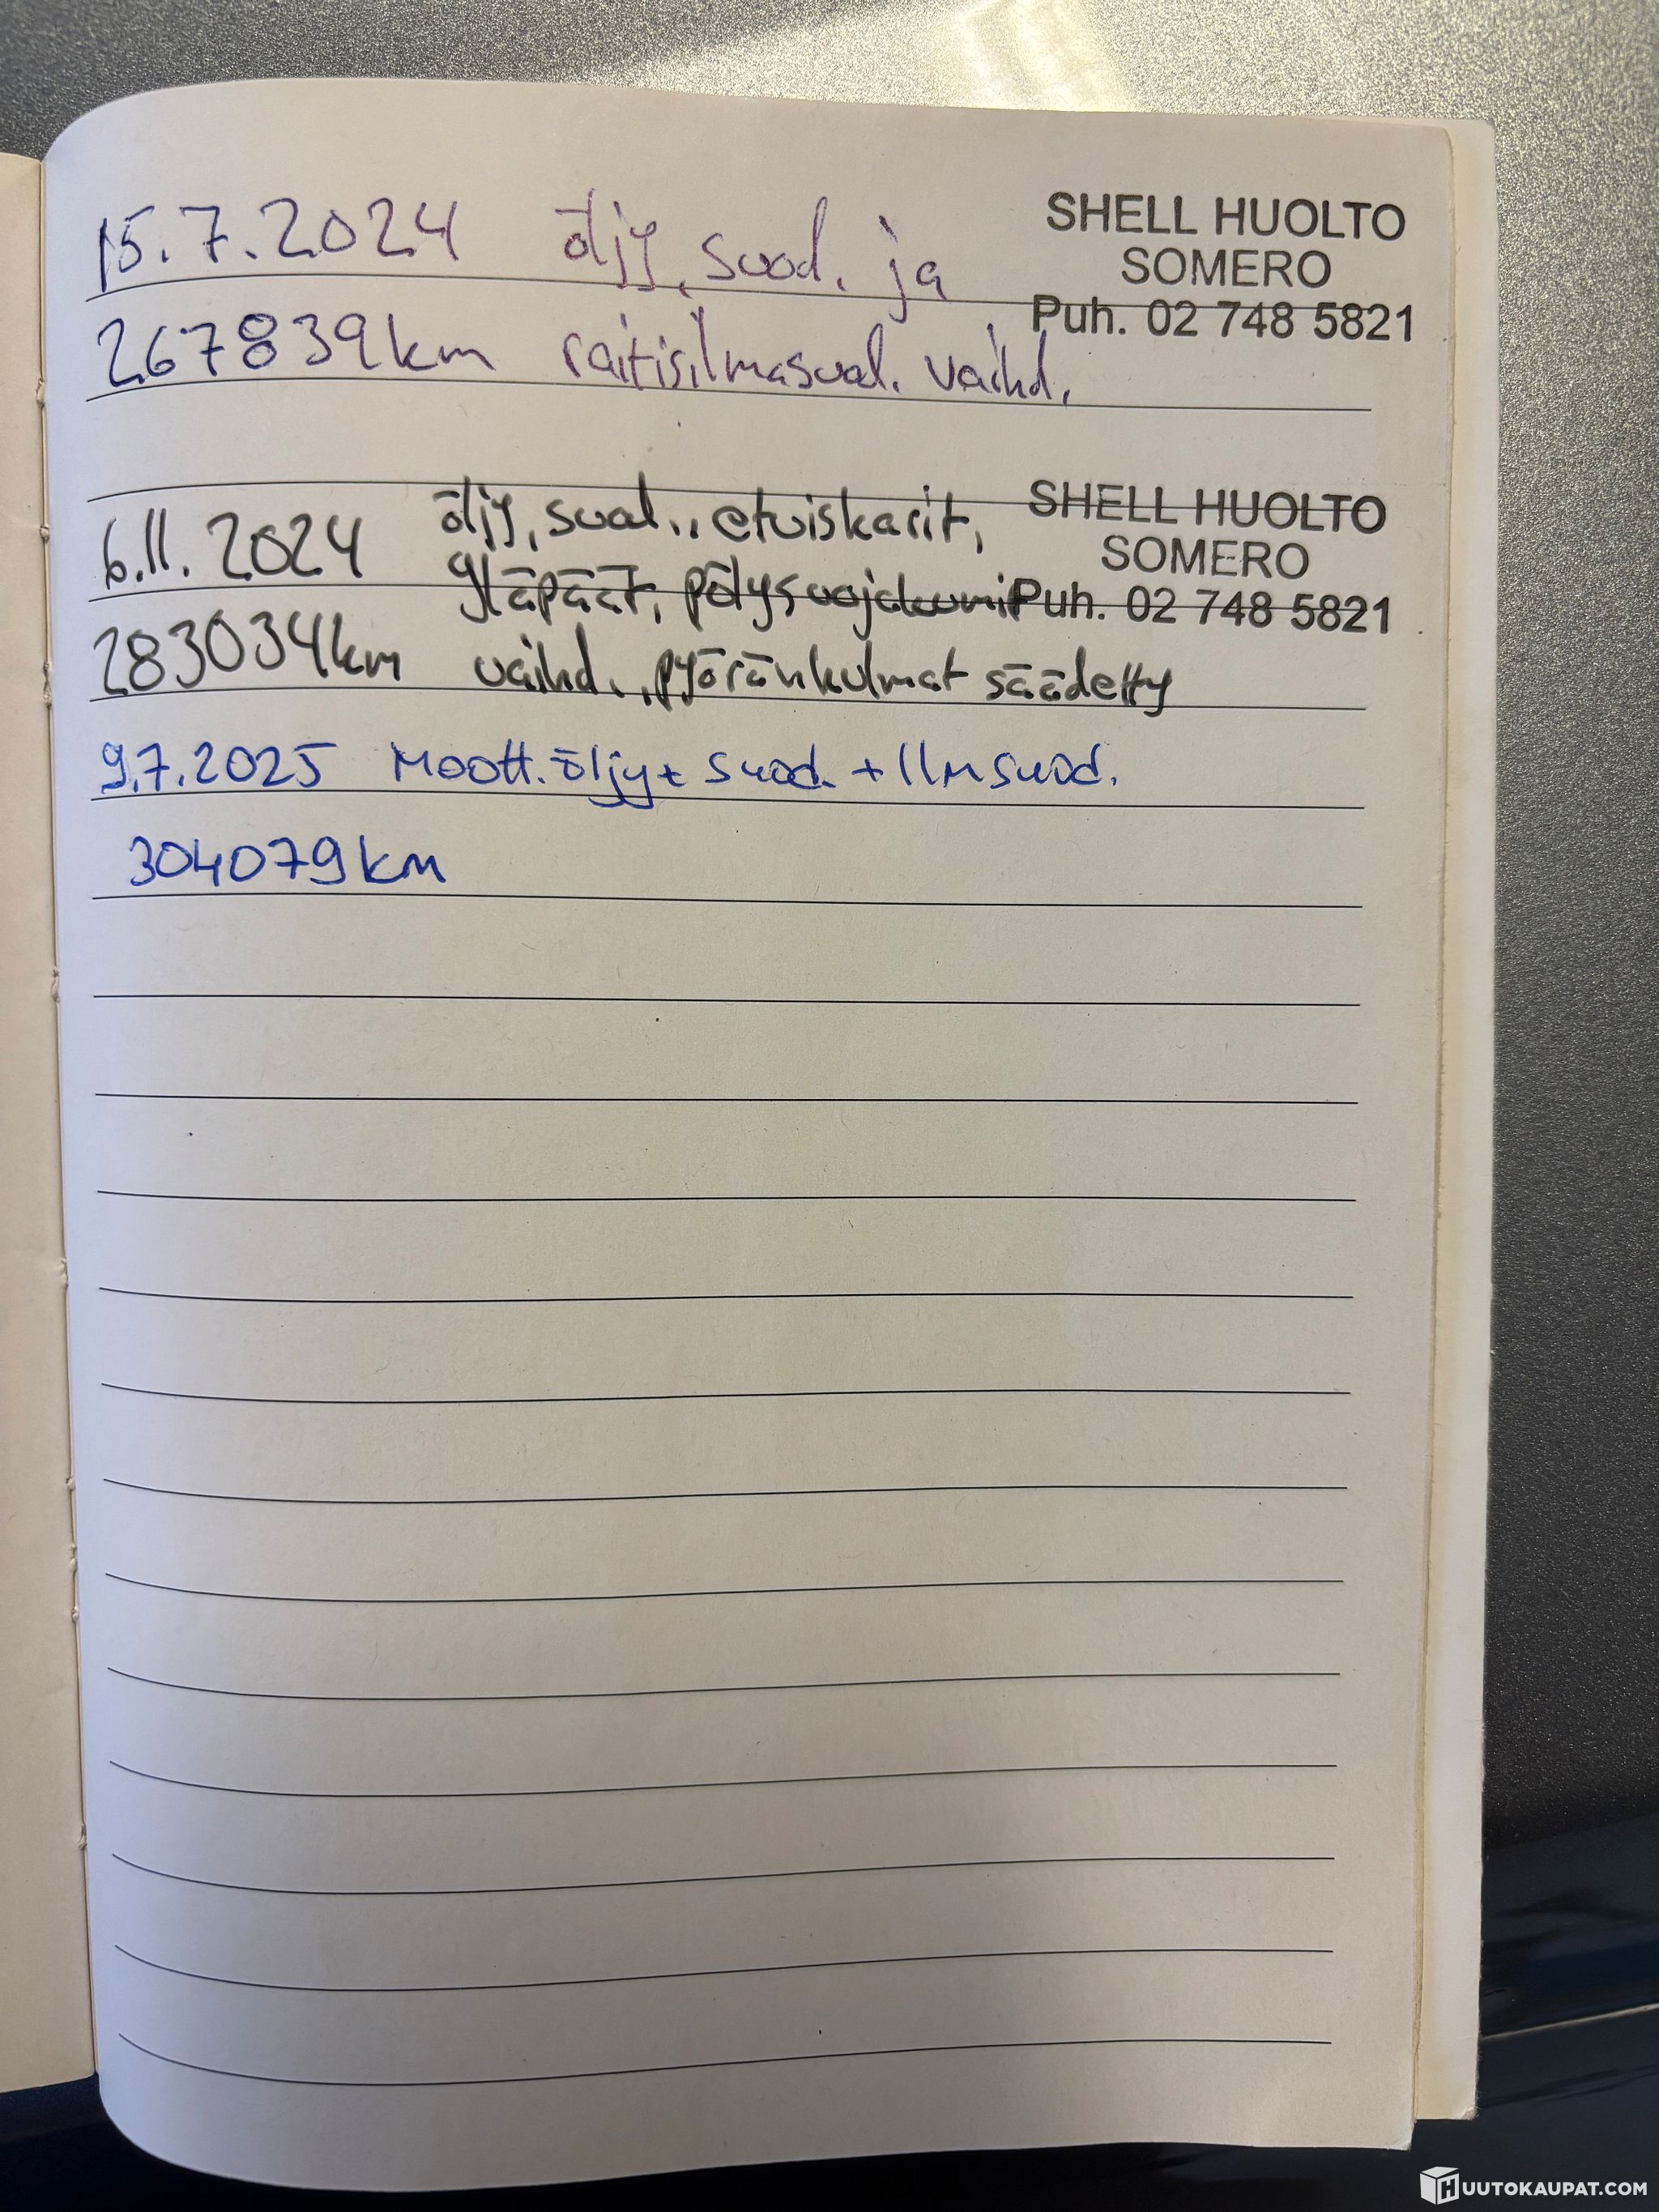 15.7.2024 öljy, suod. ja SHELL HUOLTO
SOMERO
267839km raitisilmasuod. vaihd. Puh. 02 748 5821
6.11.2024 öljy, suod., etuiskarit, SHELL HUOLTO
SOMERO
yläpäät, pölysuojakumit Puh. 02 748 5821
283034km vaihd., pyöränkulmat säädetty
9.7.2025 Moott.öljy + suod. + Ilmsuod.
304079km
HUUTOKAUPAT.COM